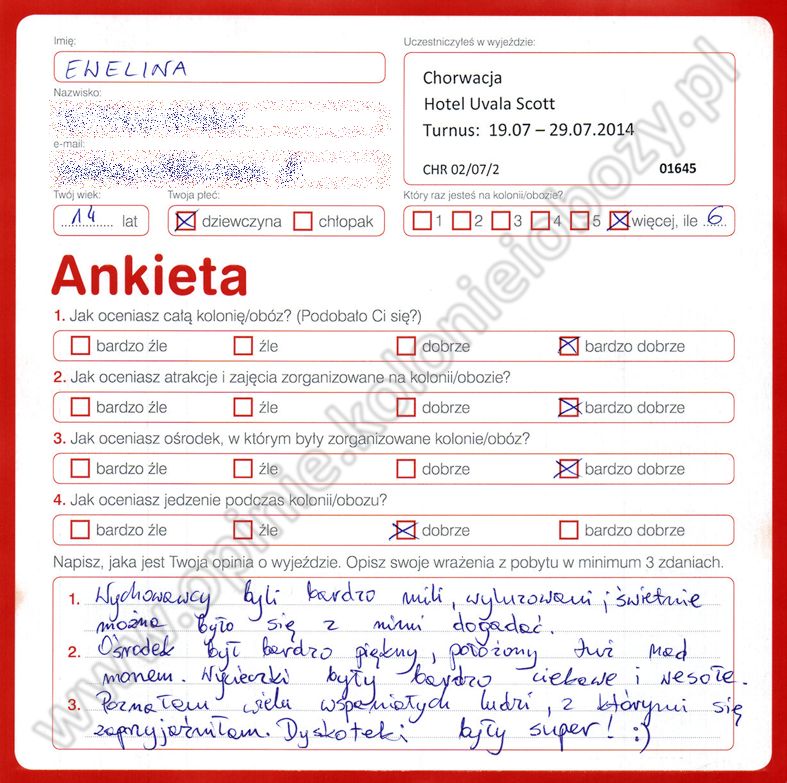 Imię:
EWELINA
Nazwisko:
e-mail:
Twój wiek:
14 lat
Twoja płeć:
dziewczyna chłopak
Uczestniczyłeś w wyjeździe:
Chorwacja
Hotel Uvala Scott
Turnus: 19.07 – 29.07.2014
CHR 02/07/2 01645
Który raz jesteś na kolonii/obozie?
1 2 3 4 5 więcej, ile 6
Ankieta
1. Jak oceniasz całą kolonię/obóz? (Podobało Ci się?)
bardzo źle źle dobrze bardzo dobrze
2. Jak oceniasz atrakcje i zajęcia zorganizowane na kolonii/obozie?
bardzo źle źle dobrze bardzo dobrze
3. Jak oceniasz ośrodek, w którym były zorganizowane kolonie/obóz?
bardzo źle źle dobrze bardzo dobrze
4. Jak oceniasz jedzenie podczas kolonii/obozu?
bardzo źle źle dobrze bardzo dobrze
Napisz, jaka jest Twoja opinia o wyjeździe. Opisz swoje wrażenia z pobytu w minimum 3 zdaniach.
1. Wychowawcy byli bardzo mili, wyluzowani i świetnie
można było się z nimi dogadać.
2. Ośrodek był bardzo piękny, położony tuż nad
morzem. Wycieczki były bardzo ciekawe i wesołe.
3. Poznałam wielu wspaniałych ludzi, z którymi się
zaprzyjaźniłam. Dyskoteki były super! :)
www.opinie.kolonieiobozy.pl